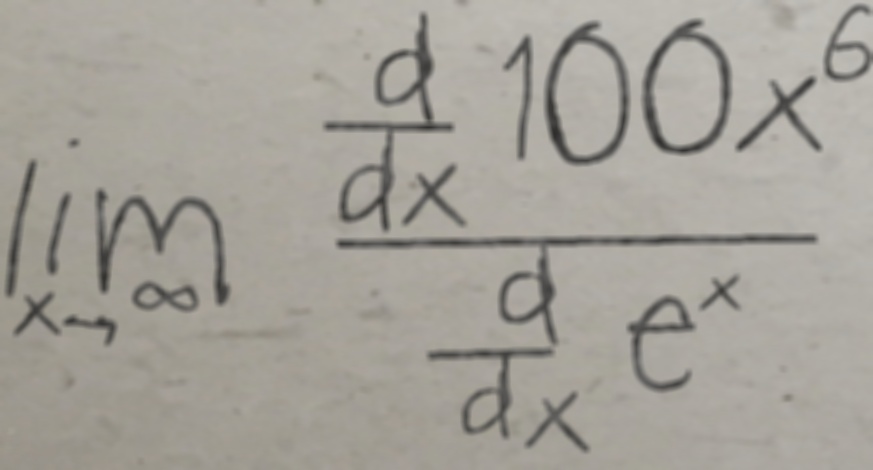 lim x→∞ \frac{\frac{d}{dx} 100x^6}{\frac{d}{dx} e^x}